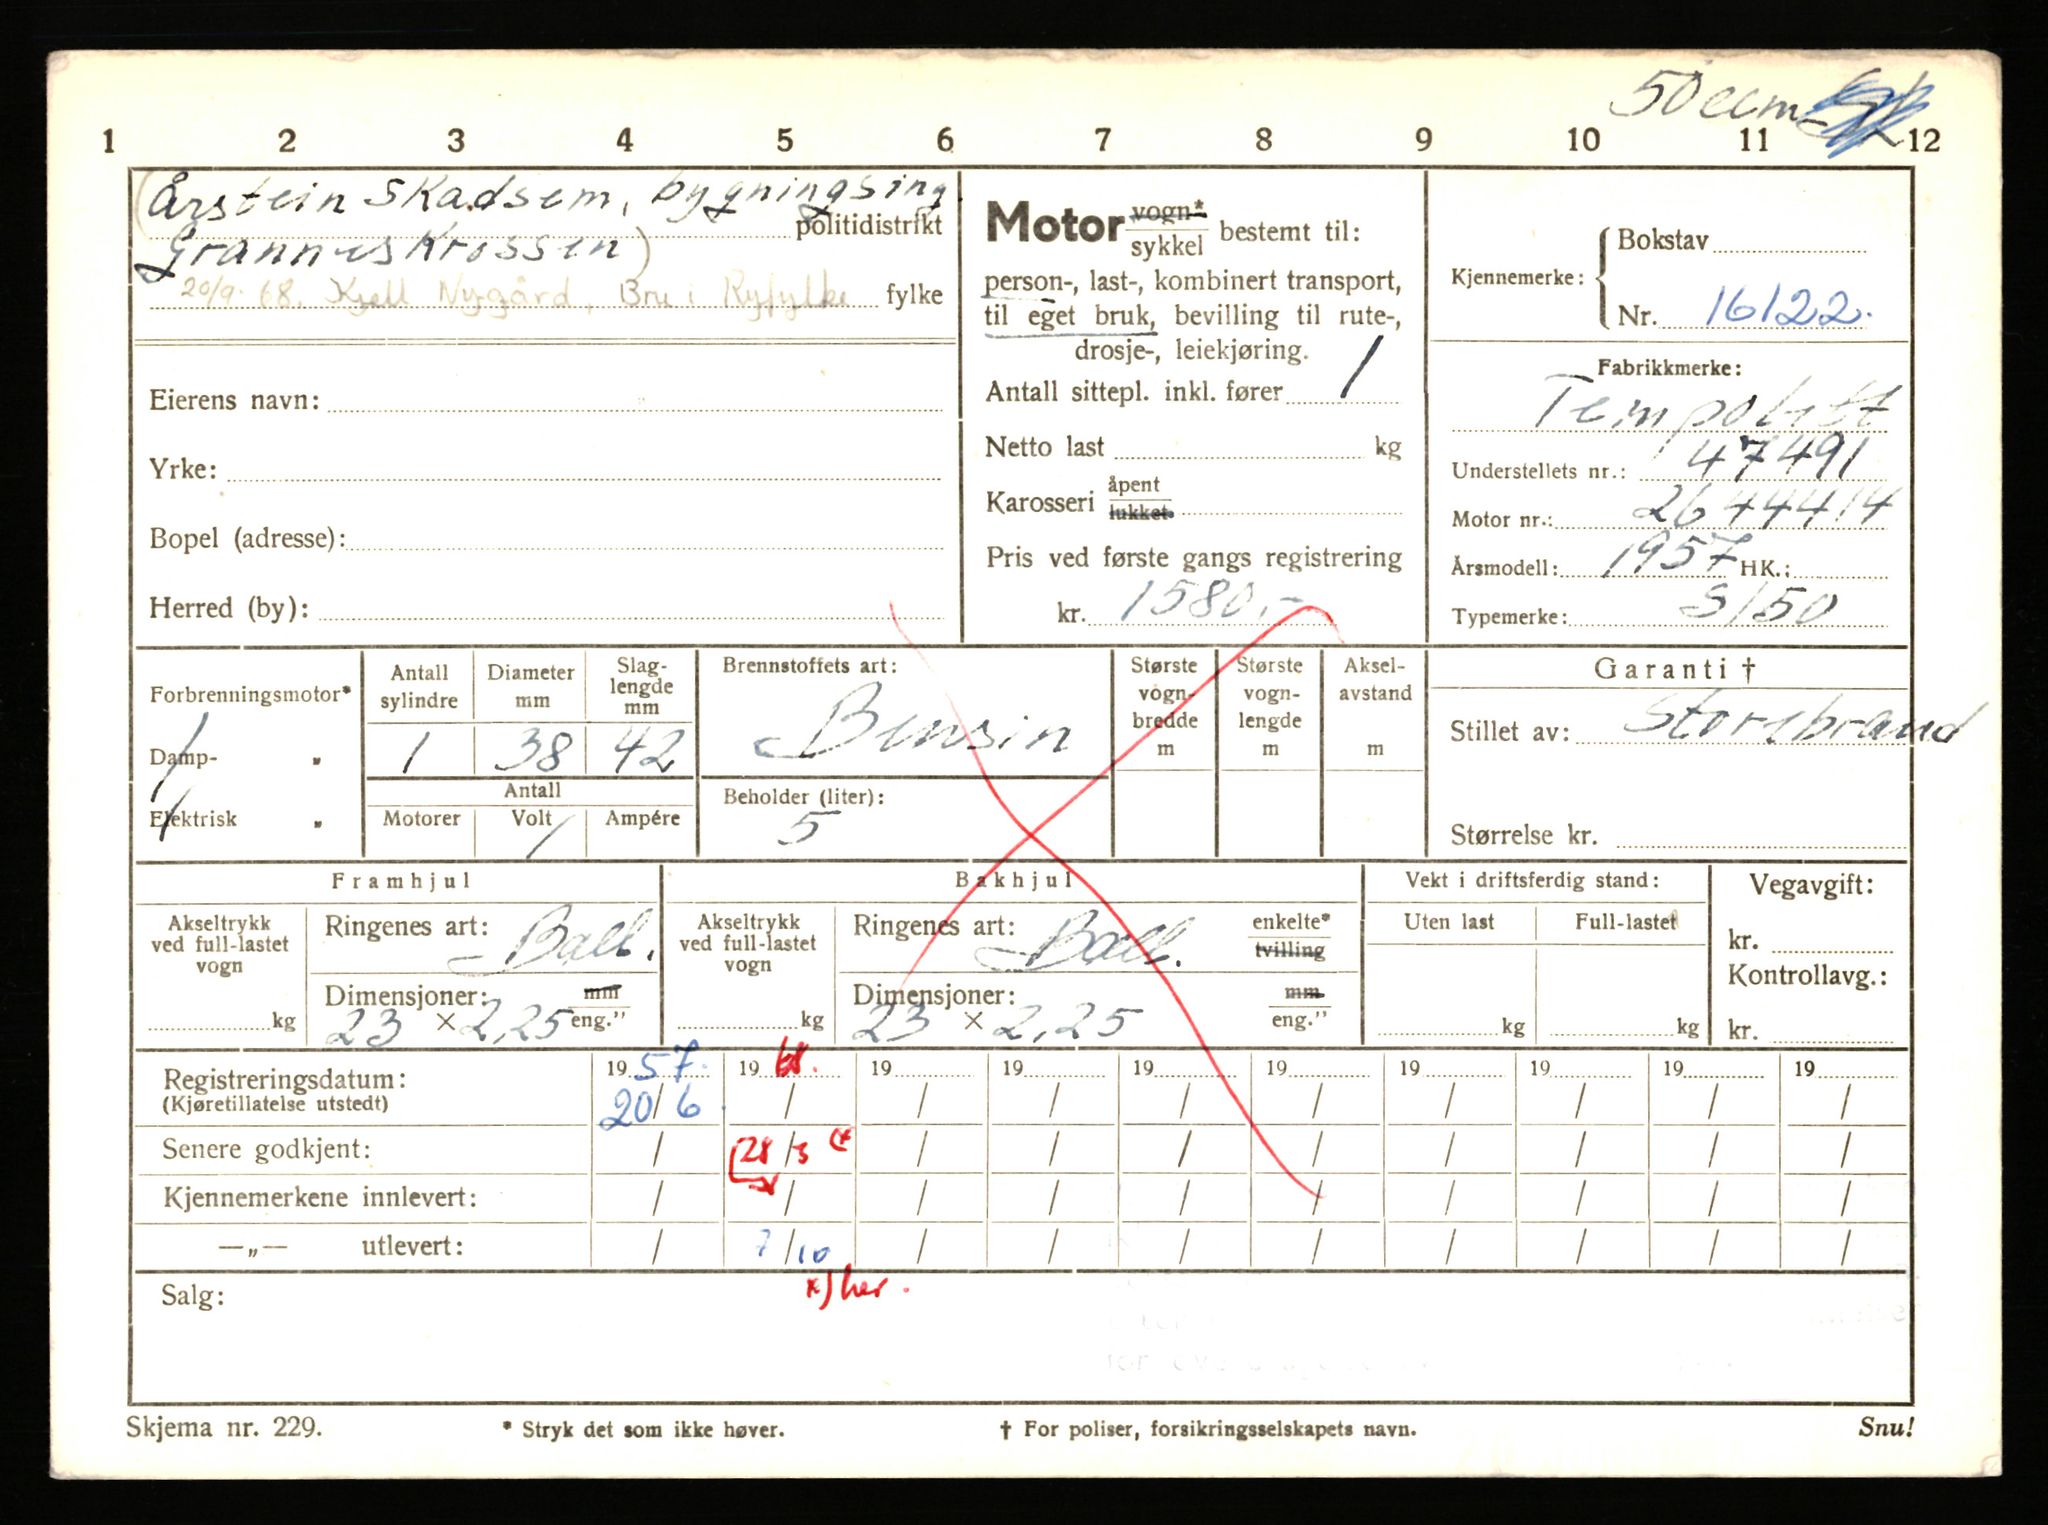 50 ccm
1 2 3 4 5 6 7 8 9 10 11 12
(Årstein Skadsem, bygningsing.
politidistrikt
Grannes Krossen)
20/9-68. Kjell Nygård, Bru i Ryfylke fylke
Eierens navn:
Yrke:
Bopel (adresse):
Herred (by):
Motor vogn* sykkel bestemt til:
person-, last-, kombinert transport,
til eget bruk, bevilling til rute-,
drosje-, leiekjøring.
Antall sittepl. inkl. fører 1
Netto last kg
Karosseri åpent lukket.
Pris ved første gangs registrering
kr. 1580,-
Kjennemerke: Bokstav
Nr. 16122.
Fabrikkmerke:
Tempolett
Understellets nr.: 47491
Motor nr.: 2644414
Årsmodell: 1957 HK.:
Typemerke: S/50
Forbrenningsmotor*
Damp- „
Elektrisk „
Antall sylindre
1
Diameter mm
38
Slag-
lengde
mm
42
Antall
Motorer Volt Ampére
Brennstoffets art:
Bensin
Beholder (liter):
5
Største
vogn-
bredde
m
Største
vogn-
lengde
m
Aksel-
avstand
m
Garanti †
Stillet av: Storebrand
Størrelse kr.
Framhjul
Akseltrykk
ved full-lastet
vogn
kg
Ringenes art: Ball.
Dimensjoner: mm
23 × 2,25 eng."
Bakhjul
Akseltrykk
ved full-lastet
vogn
kg
Ringenes art: Ball. enkelte*
tvilling
Dimensjoner: mm
23 × 2,25 eng."
Vekt i driftsferdig stand:
Uten last Full-lastet
kg kg
Vegavgift:
kr.
Kontrollavg.:
kr.
Registreringsdatum: 19 57. 19 68. 19 19 19 19 19 19 19 19
(Kjøretillatelse utstedt) 20/6. / / / / / / / / /
Senere godkjent: / 28/3 (* / / / / / / / /
Kjennemerkene innlevert: / / / / / / / / / /
—„— utlevert: / 7/10 / / / / / / / /
*) her.
Salg:
Skjema nr. 229.
* Stryk det som ikke høver.
† For poliser, forsikringsselskapets navn.
Snu!